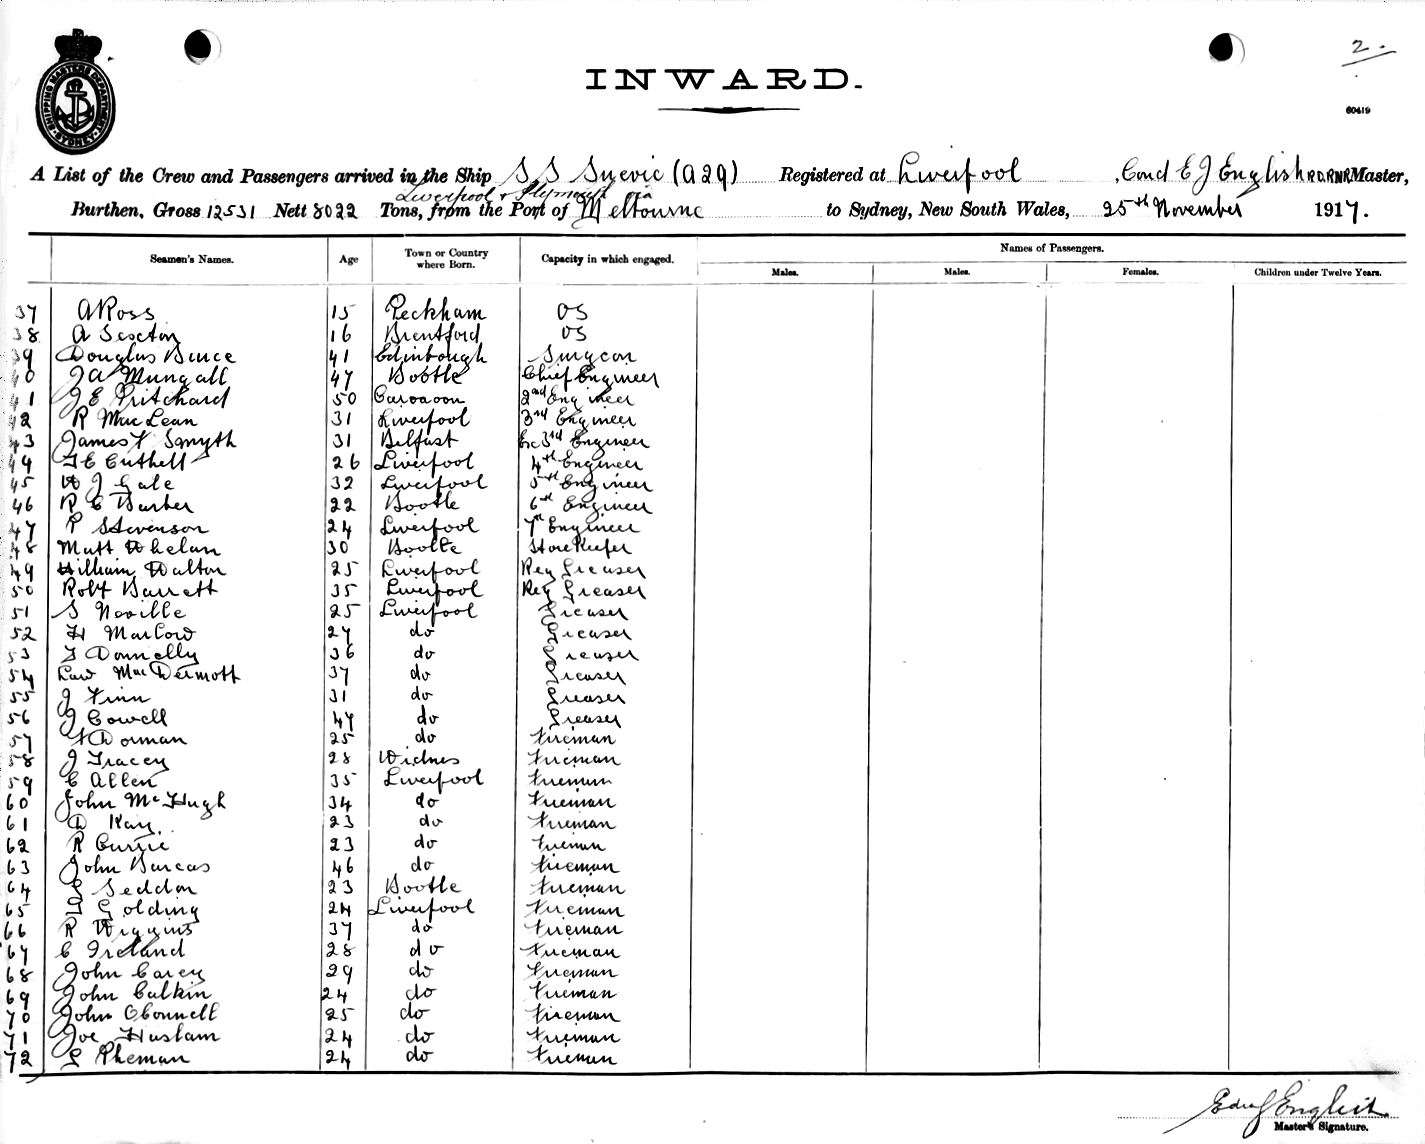 SHIPPING MASTERS DEPARTMENT SYDNEY
2.
INWARD.
60419
A List of the Crew and Passengers arrived in the Ship S S Suevic (A29) Registered at Liverpool , E J English RD.RNR Master,
Liverpool & Plymouth via
Burthen, Gross 12531 Nett 8022 Tons, from the Port of Melbourne to Sydney, New South Wales, 25th November 1917.
Names of Passengers.
Seamen's Names. Age Town or Country where Born. Capacity in which engaged. Males. Males. Females. Children under Twelve Years.
37 A Ross 15 Peckham OS
38 A Sexton 16 Brentford OS
39 Douglas Bruce 41 Edinbough Surgeon
40 J A Mungall 47 Bootle Chief Engineer
41 J E Pritchard 50 2nd Engineer
42 R MacLean 31 Liverpool 3rd Engineer
43 James F Smyth 31 Belfast Ex 3rd Engineer
44 T E Cuthell 26 Liverpool 4th Engineer
45 W J Gale 32 Liverpool 5th Engineer
46 R C Barber 22 Bootle 6th Engineer
47 P Stevenson 24 Liverpool 7th Engineer
48 Matt Whelan 30 Bootle Storekeeper
49 William Walton 25 Liverpool Reg Greaser
50 Robt Barrett 35 Liverpool Reg Greaser
51 S Neville 25 Liverpool Greaser
52 H Marlow 27 do Greaser
53 T Donnelly 36 do Greaser
54 Law MacDermott 37 do Greaser
55 J Finn 31 do Greaser
56 J Cowell 47 do Greaser
57 F Dorman 25 do Fireman
58 J Tracey 28 Widnes Fireman
59 C Allen 35 Liverpool Fireman
60 John McHugh 34 do Fireman
61 D Kay 23 do Fireman
62 R Currie 23 do Fireman
63 John Barcas 46 do Fireman
64 S Seddon 23 Bootle Fireman
65 T Golding 24 Liverpool Fireman
66 R Wiggins 37 do Fireman
67 C Ireland 28 do Fireman
68 John Carey 29 do Fireman
69 John Calkin 24 do Fireman
70 John OConnell 25 do Fireman
71 Joe Haslam 24 do Fireman
72 S Pheman 24 do Fireman
Edw J English
Master's Signature.